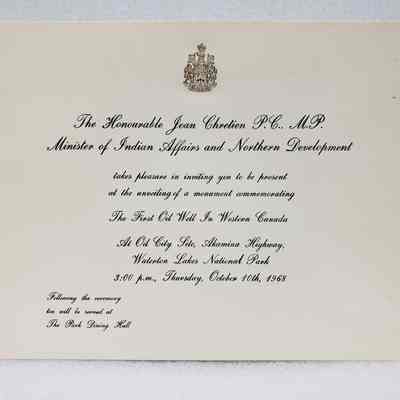 The Honourable Jean Chretien P.C., M.P.
Minister of Indian Affairs and Northern Development
takes pleasure in inviting you to be present
at the unveiling of a monument commemorating
The First Oil Well In Western Canada
At Oil City Site, Akamina Highway,
Waterton Lakes National Park
3:00 p.m., Thursday, October 10th, 1968
Following the ceremony
tea will be served at
The Park Dining Hall